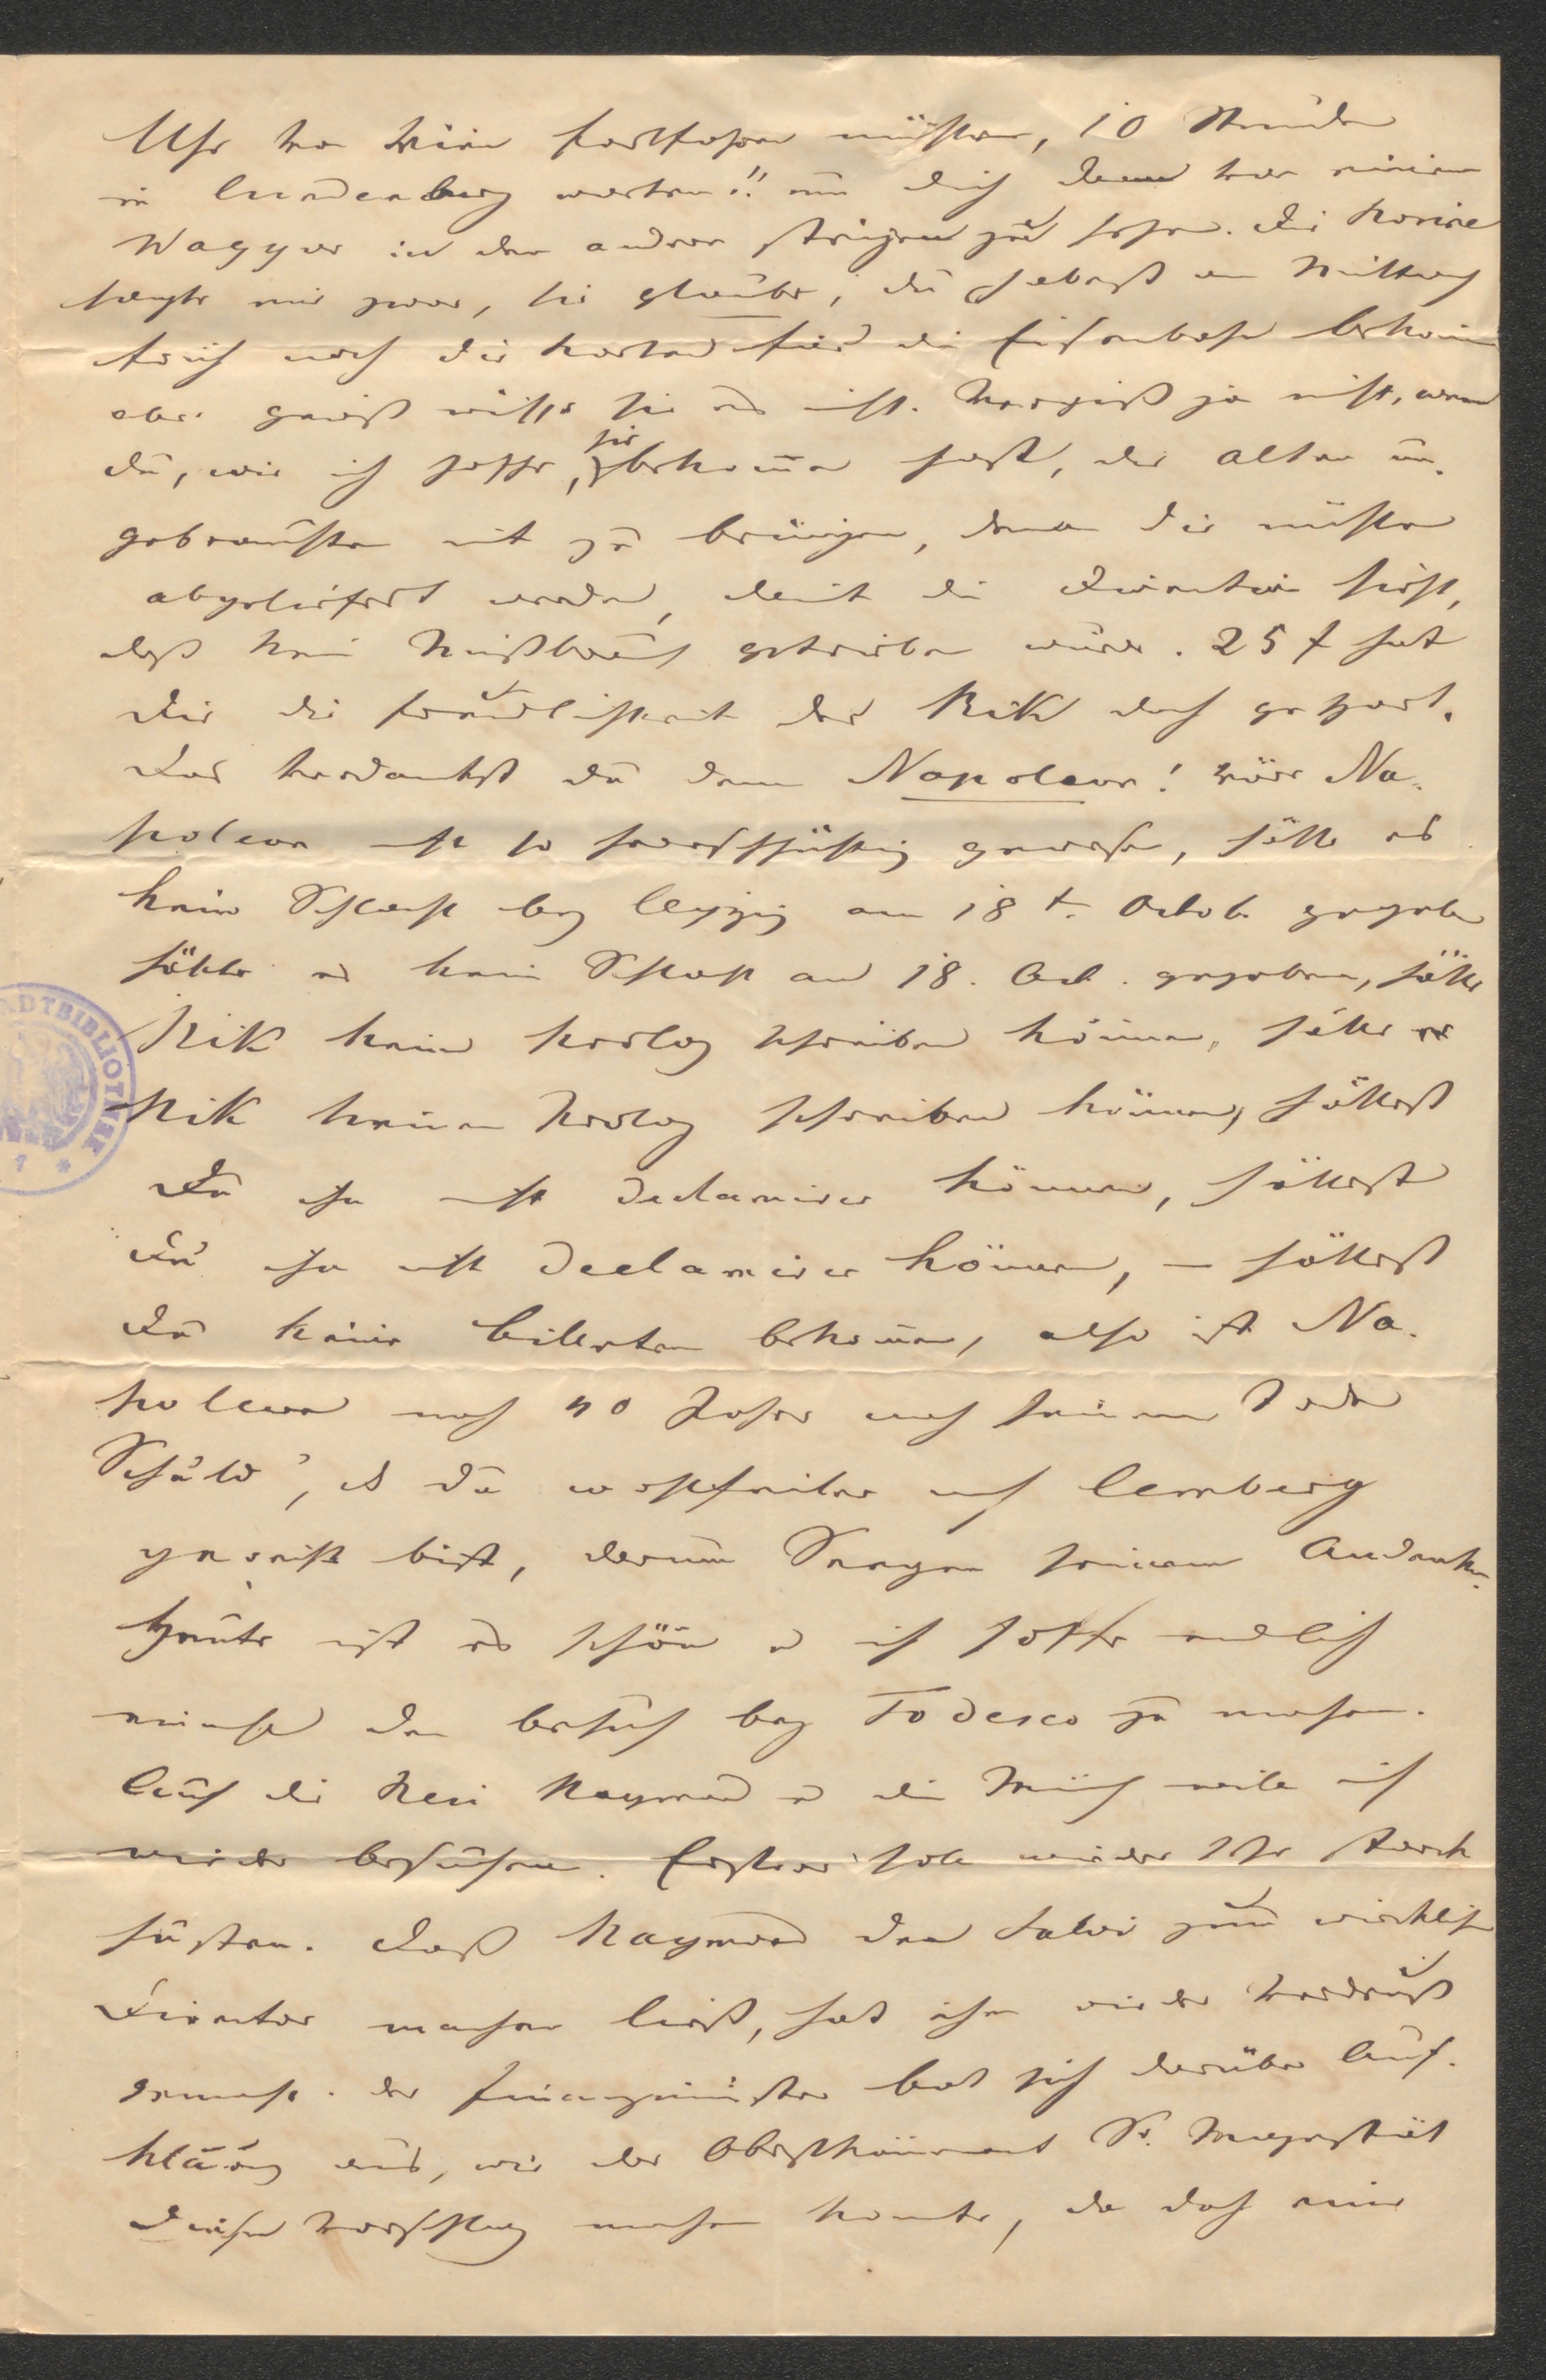 Uhr von Wien fortfahren müssen, 10 Stunden
in Lundenburg warten!! um dich dann von einem
Waggon in den andren steigen zu sehen. Die
sagte mir zwar, sie glaube, du habest am Mittwoch
früh noch die Karten für die Eisenbahn bekomm
aber gewiß wisse sie es nicht. Vergiß ja nicht, wenn
du, wie ich hoffe, sie bekomen hast, die alten un-
gebrauchten mit zu bringen, denn die müssen
abgeliefert werden, damit die Direction sieht,
daß kein Mißbrauch getrieben wurde. 25 f hat
dir die Freundlichkeit der Rik doch gespart.
Das verdankst du dem Napoleon! wäre Na-
poleon nicht so herrschsüchtig gewesen, hätte es
keine Schlacht bey Leipzig am 18t. Octob. gegeben
hätte es keine Schlacht am 18. Oct. gegeben, hätte
Rik keinen Prolog schreiben können, hätte
Rik keinen Prolog schreiben können, hättest
Du ihn nicht declamiren können, hättest
Du ihn nicht declamiren können, – hättest
Du keine Billeten bekomen, also ist Na-
poleon noch 40 Jahre nach seinem Tode
Schuld, daß du wohlfeiler nach Lemberg
gereist bist, darum Seegen seinem Andenken.
Heute ist es schön u ich hoffe endlich
einmahl den Besuch bey Todesco zu machen.
Auch die Neri Raymond u die Mich will ich
wieder besuchen. Erstere soll wieder sehr stark
husten. Daß Raymond den Salvi zum wirklichen
Director machen ließ, hat ihm wieder Verdruß
gemacht. Der Finanzminister bat sich darüber Auf-
klärung aus, wie der Obersthämerer Sr. Majestät
diesen Vorschlag machen konnte, da doch eine
STADTBIBLIOTHEK